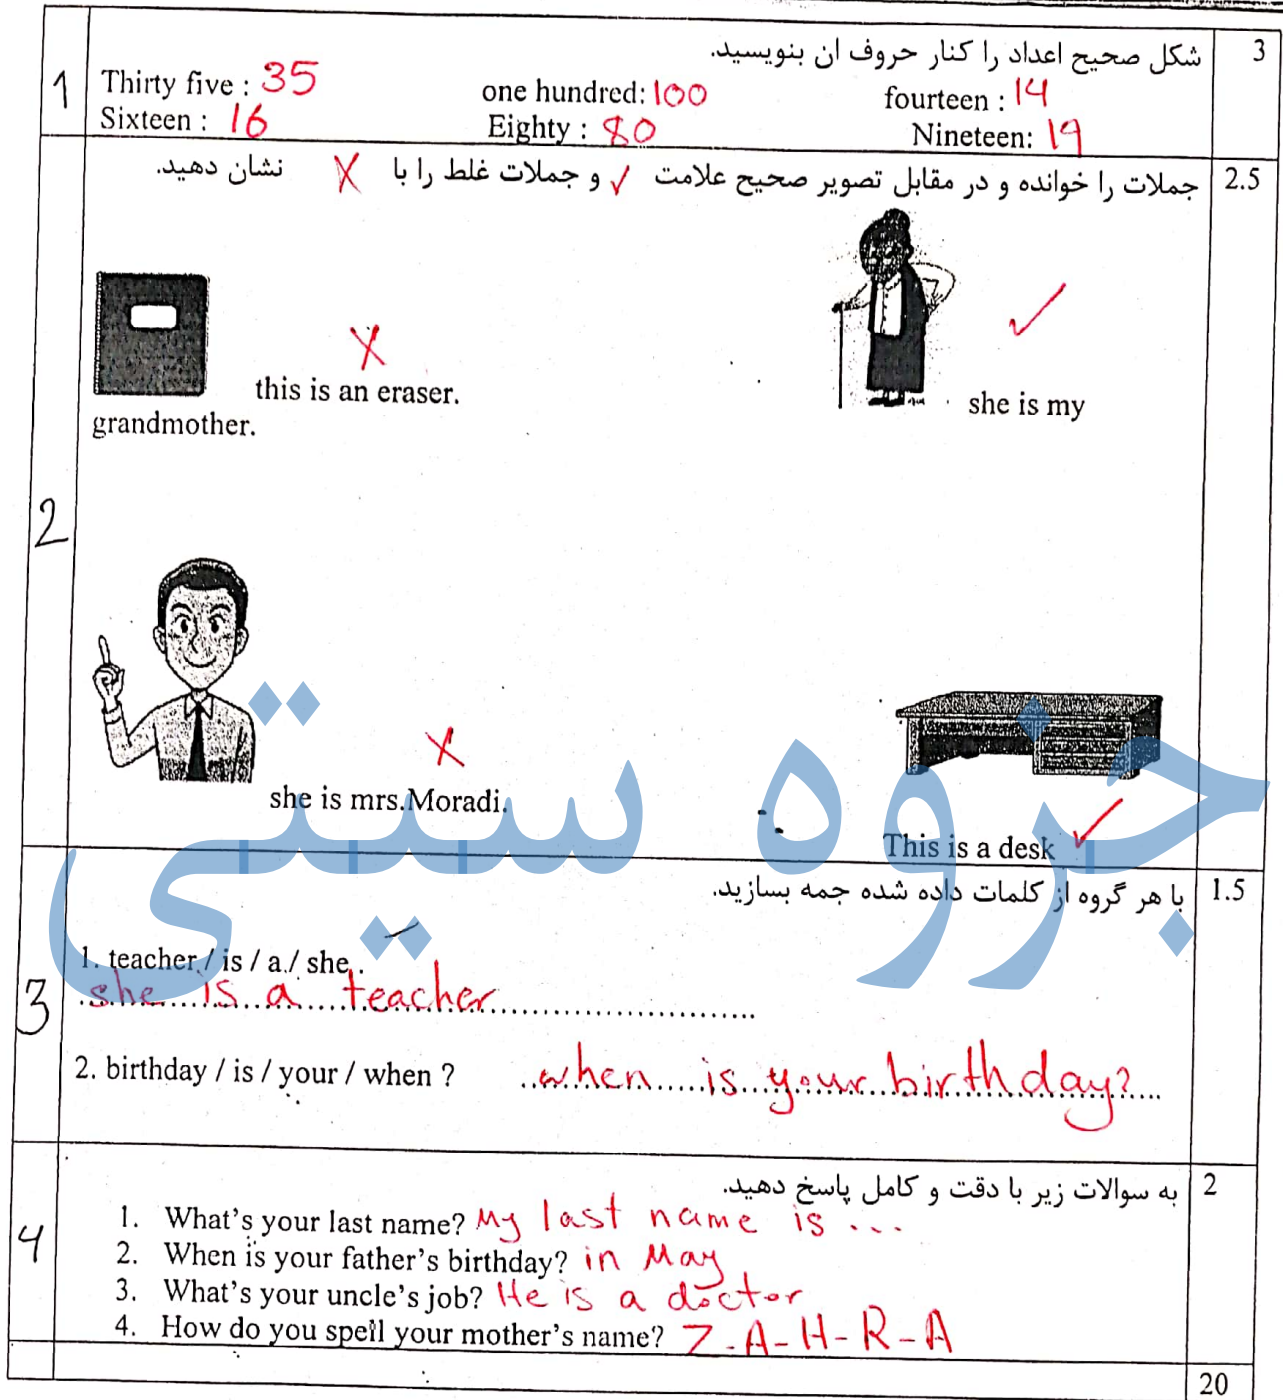 شکل صحیح اعداد را کنار حروف ان بنویسید. 3
1 Thirty five : 35 one hundred: 100 fourteen : 14
Sixteen : 16 Eighty : 80 Nineteen: 19
جملات را خوانده و در مقابل تصویر صحیح علامت ✓ و جملات غلط را با X نشان دهید. 2.5
X ✓
this is an eraser. she is my
grandmother.
2
X
she is mrs.Moradi.
This is a desk ✓
جزوه سیتی
با هر گروه از کلمات داده شده جمه بسازید. 1.5
1. teacher / is / a / she .
3 she is a teacher
2. birthday / is / your / when ? when is your birthday?
به سوالات زیر با دقت و کامل پاسخ دهید. 2
4 1. What's your last name? My last name is ...
2. When is your father's birthday? in May
3. What's your uncle's job? He is a doctor
4. How do you spell your mother's name? Z-A-H-R-A
20